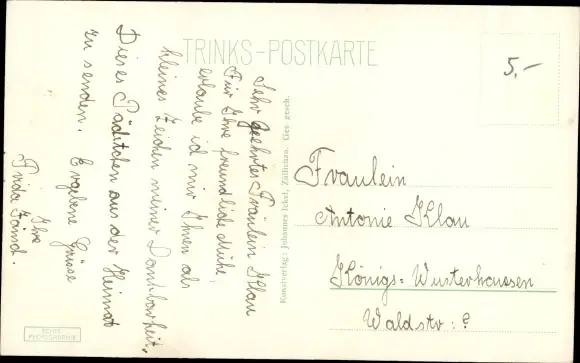 TRINKS-POSTKARTE
5,-
Sehr geehrtes Fräulein Klau
Für Ihre freundliche Mühe,
erlaube ich mir Ihnen als
kleines Zeichen meiner Dankbarkeit,
Dieses Päditchen aus der Heimat
zu senden. Ergebene Grüsse
Ihre
Frida
Kunstverlag: Johannes Ickel, Züllichau. Ges. gesch.
Fraulein
Antonie Klau
Königs-Wusterhausen
Waldstr: ?
ECHTE
PHOTOGRAPHIE